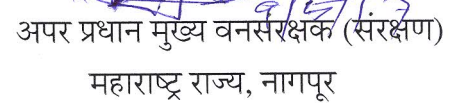 अपर प्रधान मुख्य वनसंरक्षक (संरक्षण)
महाराष्ट्र राज्य, नागपूर